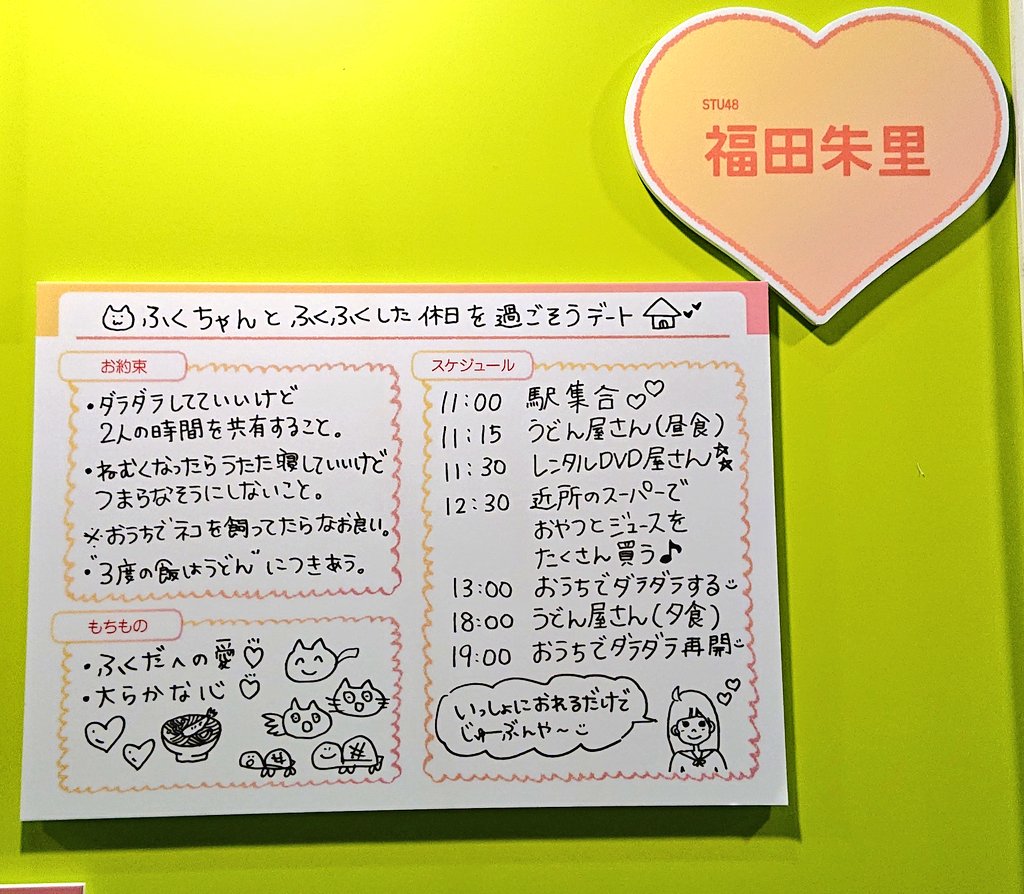 STU48
福田朱里
ふくちゃんと ふくふくした 休日を過ごそうデート
お約束
・ダラダラしてていいけど
2人の時間を共有すること。
・ねむくなったらうたた寝していいけど
つまらなそうにしないこと。
※おうちでネコを飼ってたらなお良い。
・"3度の飯はうどん"につきあう。
もちもの
・ふくだへの愛♡
・大らかな心♡
スケジュール
11:00 駅集合♡♡
11:15 うどん屋さん(昼食)
11:30 レンタルDVD屋さん☆☆
12:30 近所のスーパーで
おやつとジュースを
たくさん買う♪
13:00 おうちでダラダラする
18:00 うどん屋さん(夕食)
19:00 おうちでダラダラ再開
いっしょにおれるだけで
じゅーぶんや〜